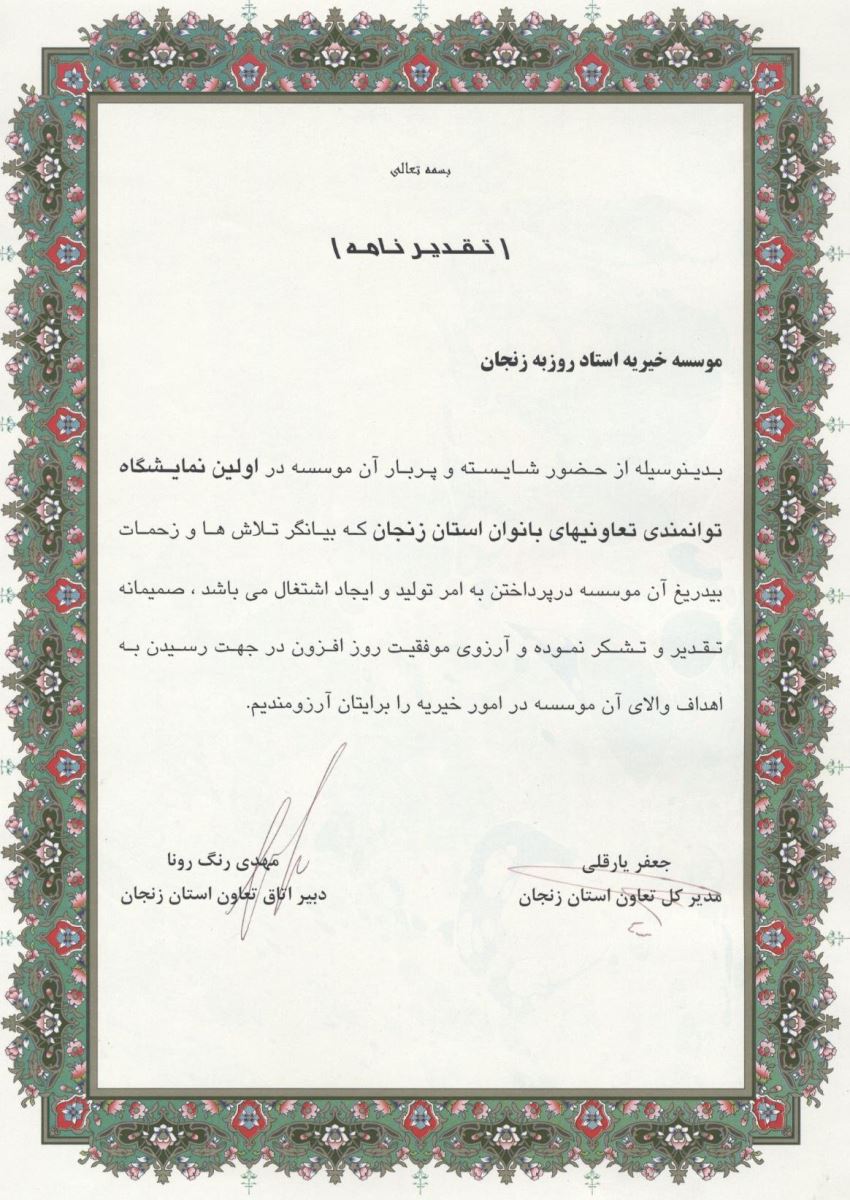 بسمه تعالی
( تقدیر نامه )
موسسه خیریه استاد روزبه زنجان
بدینوسیله از حضور شایسته و پربار آن موسسه در اولین نمایشگاه
توانمندی تعاونیهای بانوان استان زنجان که بیانگر تلاش ها و زحمات
بیدریغ آن موسسه درپرداختن به امر تولید و ایجاد اشتغال می باشد ، صمیمانه
تقدیر و تشکر نموده و آرزوی موفقیت روز افزون در جهت رسیدن به
اهداف والای آن موسسه در امور خیریه را برایتان آرزومندیم.
جعفر یارقلی
مدیر کل تعاون استان زنجان
مهدی رنگ رونا
دبیر اتاق تعاون استان زنجان